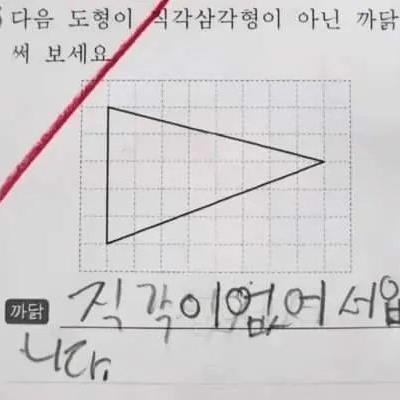 다음 도형이 직각삼각형이 아닌 까닭
써 보세요
까닭 직각이없어서입
니다.